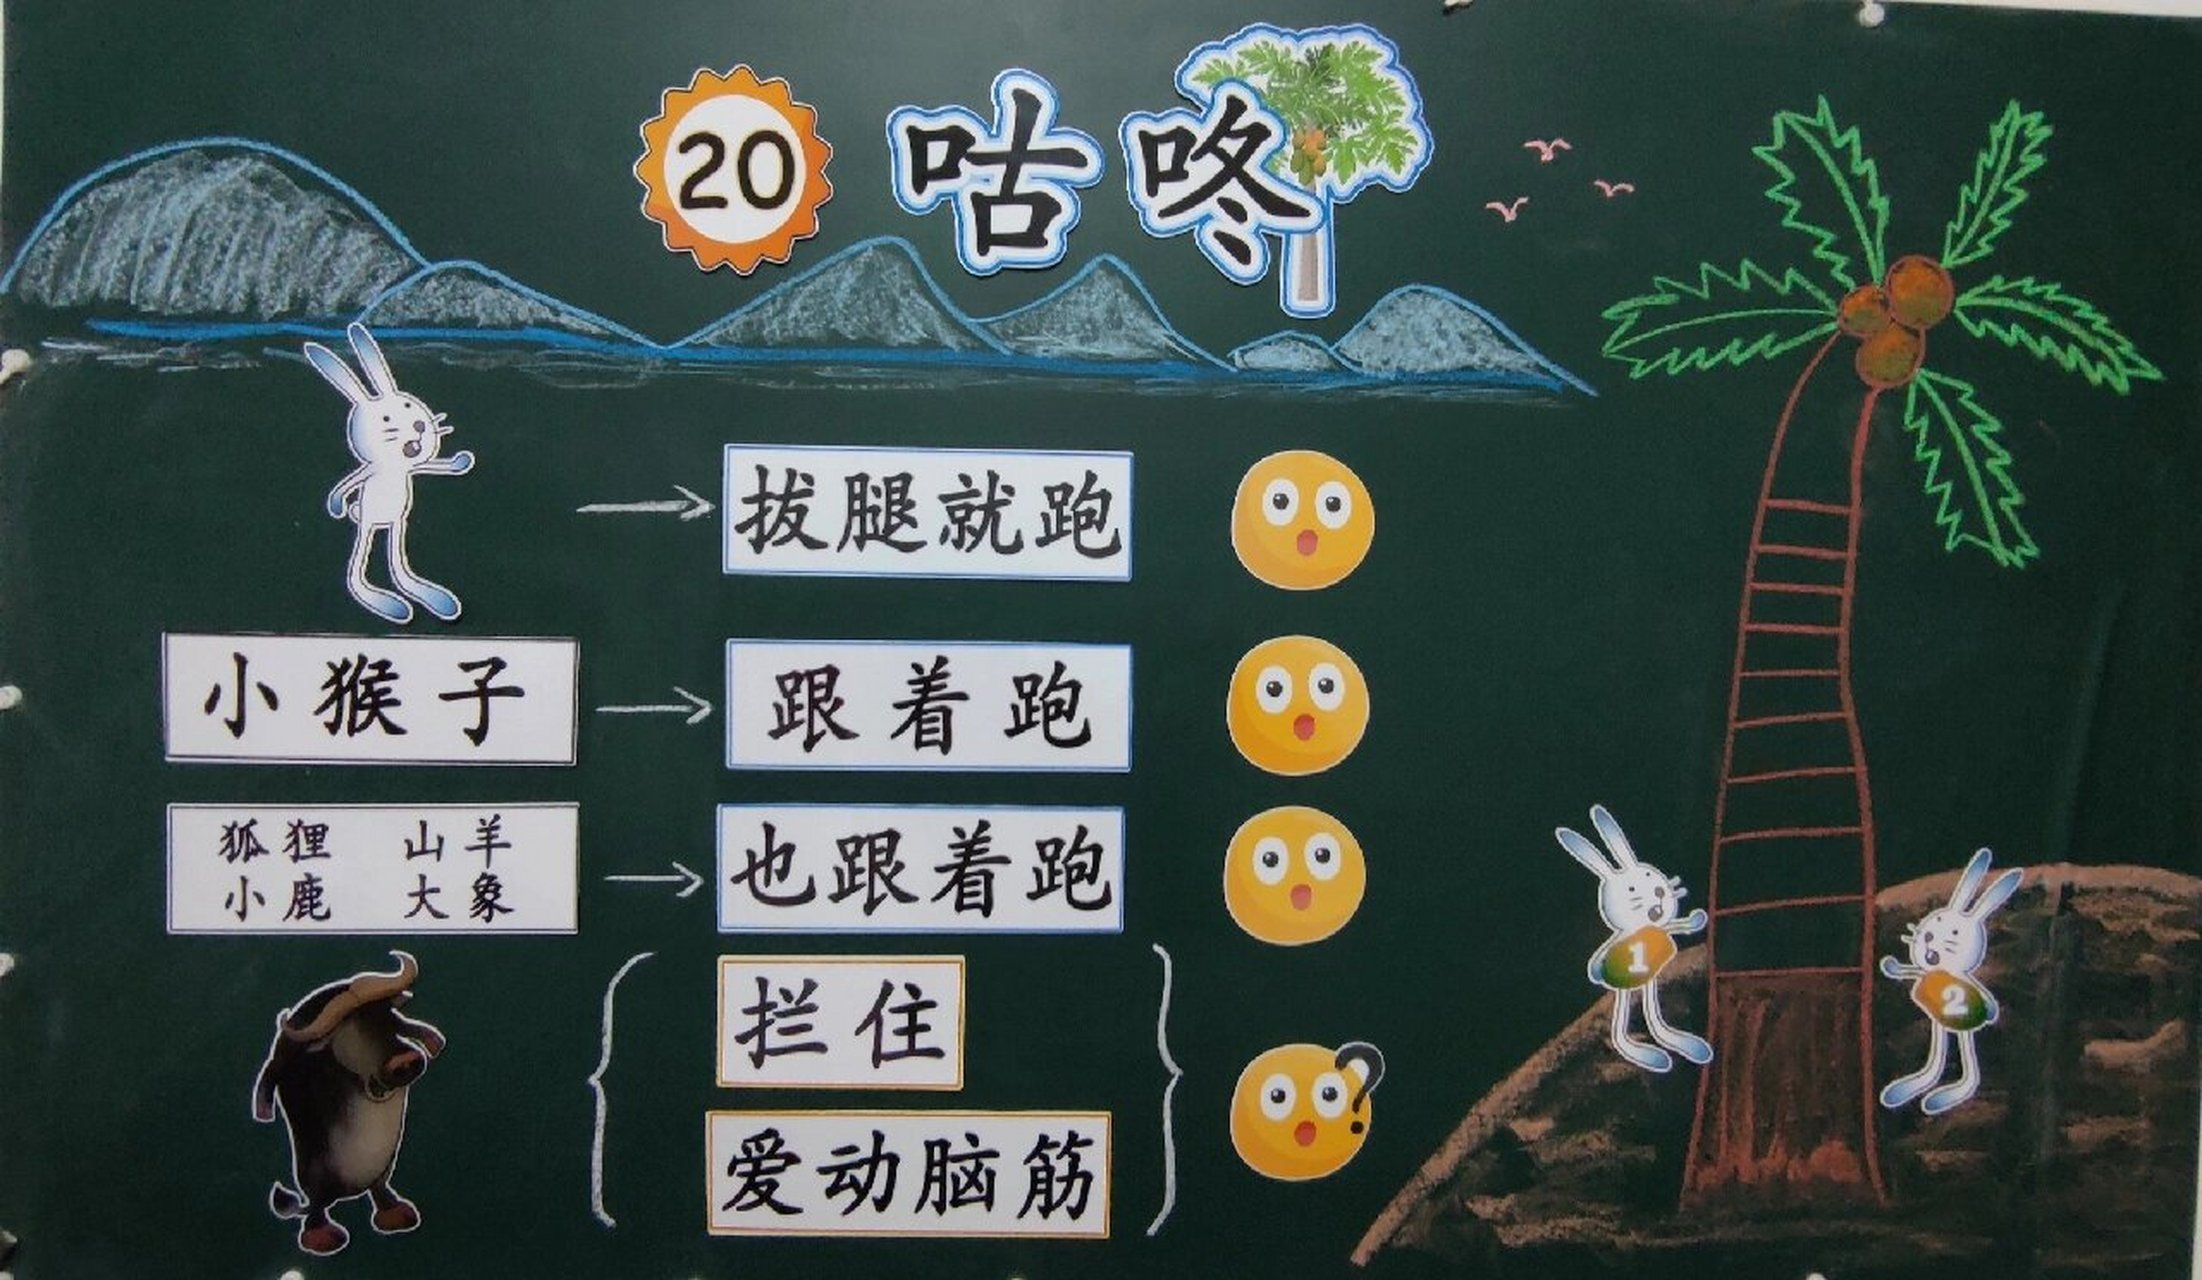 20 咕咚
拔腿就跑
小猴子
跟着跑
狐狸 山羊
小鹿 大象
也跟着跑
拦住
爱动脑筋
?
1
2